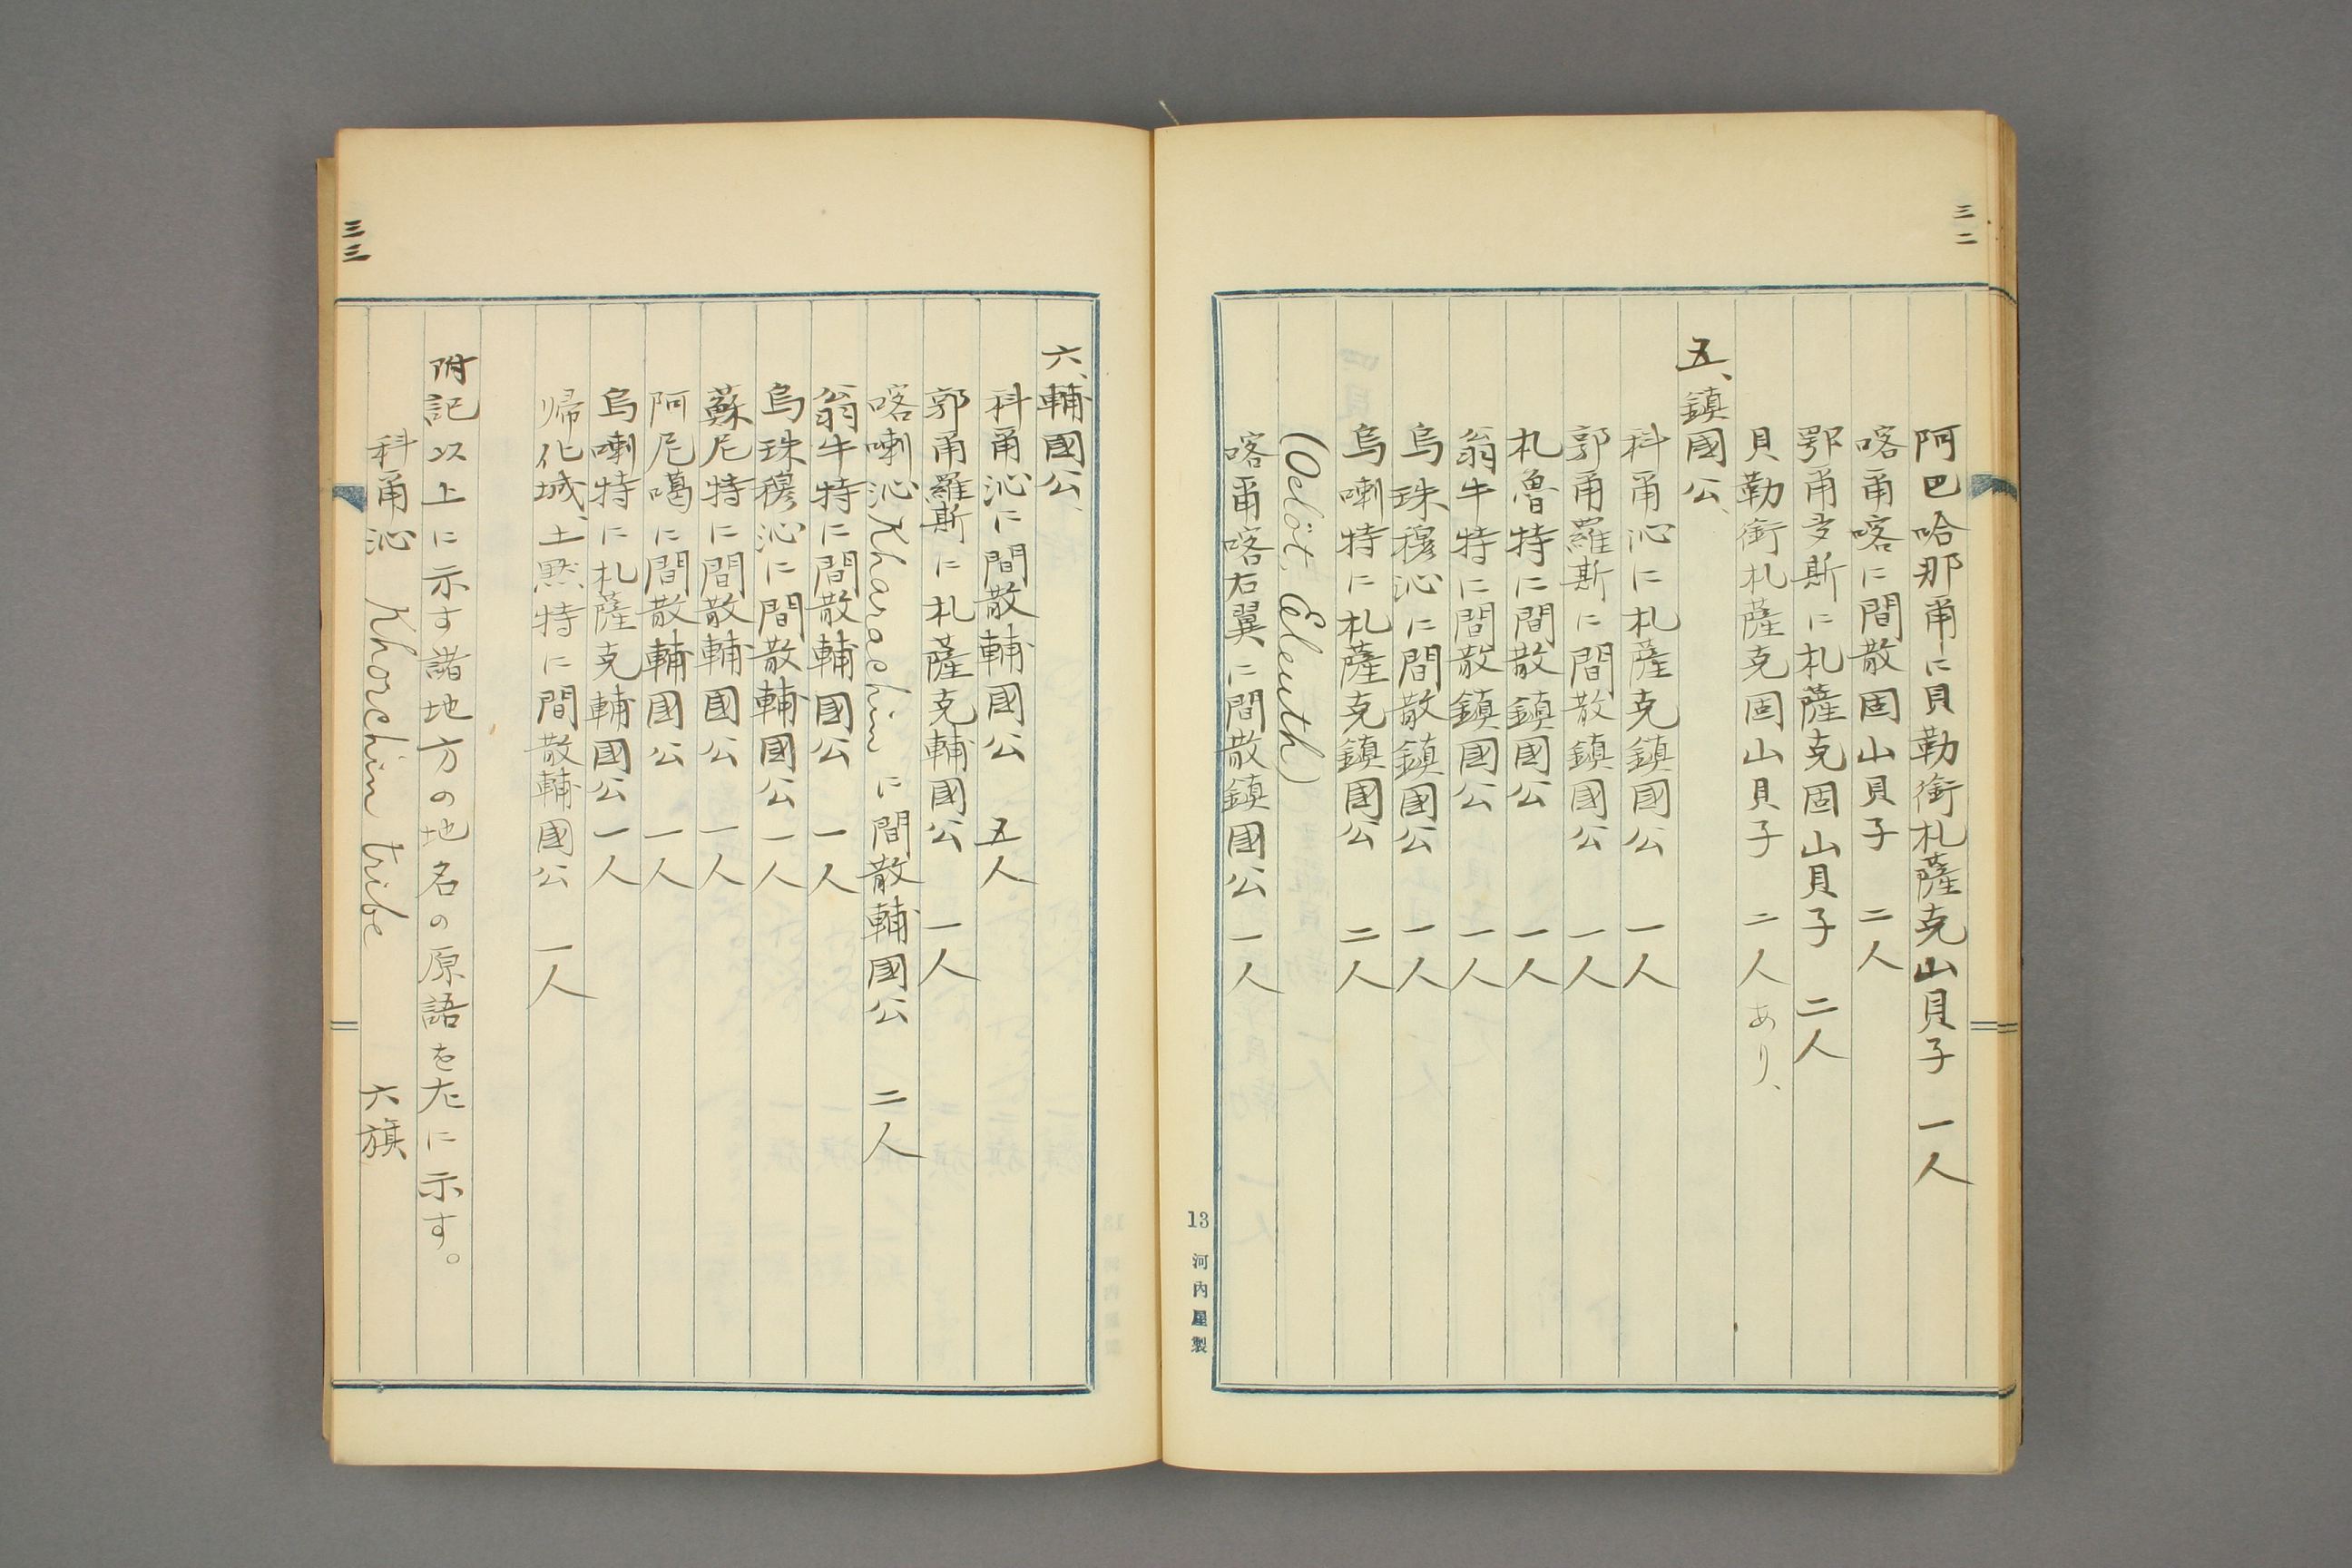 三二
阿巴哈那甭に貝勒銜札薩克山貝子 一人
喀甭喀に間散固山貝子 二人
鄂甭多斯に札薩克固山貝子 二人
貝勒銜札薩克固山貝子 二人あり、
五、鎮國公、
科甭沁に札薩克鎮國公 一人
郭甭羅斯に間散鎮國公 一人
札魯特に間散鎮國公 一人
翁牛特に間散鎮國公 一人
烏珠穆沁に間散鎮國公 一人
烏喇特に札薩克鎮國公 二人
(Oelöt, Eleuth)
喀甭喀右翼に間散鎮國公 一人
13 河内屋製
六、輔國公、
科甭沁に間散輔國公 五人
郭甭羅斯に札薩克輔國公 一人
喀喇沁 Kharachin に間散輔國公 二人
翁牛特に間散輔國公 一人
烏珠穆沁に間散輔國公 一人
蘇尼特に間散輔國公 一人
阿尼噶に間散輔國公 一人
烏喇特に札薩克輔國公 一人
帰化城、土黙特に間散輔國公 一人
附記 以上に示す諸地方の地名の原語を左に示す。
科甭沁 Khorchin tribe 六旗
三三